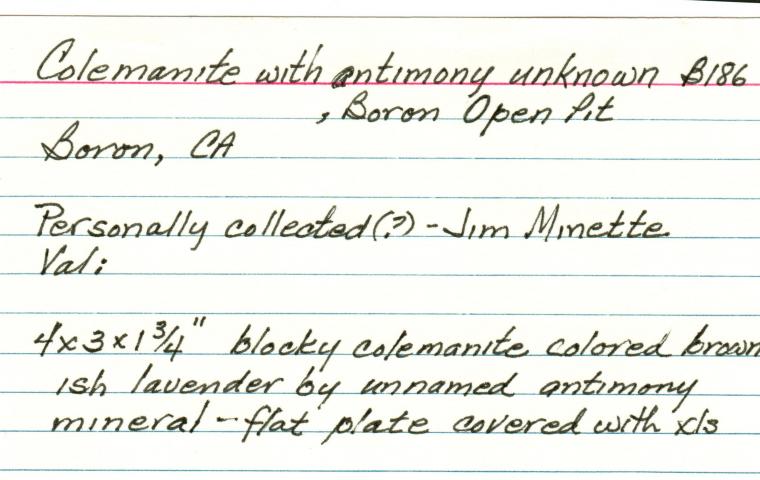 Colemanite with antimony unknown B186
, Boron Open Pit
Boron, CA
Personally collected(?) - Jim Minette
Val:
4x3x1 3/4" blocky colemanite colored brown
ish lavender by unnamed antimony
mineral - flat plate covered with xls